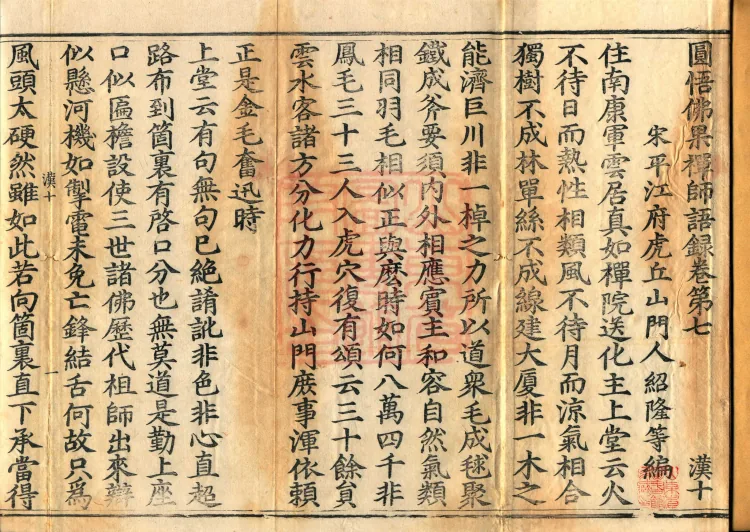 圓悟佛果禪師語録卷第七 漢十
宋平江府虎丘山門人紹隆等編
住南康軍雲居真如禪院送化主上堂云火
不待日而熱性相類風不待月而涼氣相合
獨樹不成林單絲不成線建大厦非一木之
能濟巨川非一棹之力所以道衆毛成毬聚
鐵成斧要須内外相應賓主和容自然氣類
相同羽毛相似正與麽時如何八萬四千非
鳳毛三十三人入虎穴復有頌云三十餘負
雲水客諸方分化力行持山門庻事渾依頼
正是金毛奮迅時
上堂云有句無句已絶誵訛非色非心直超
路布到箇裏有啓口分也無莫道是勤上座
口似匾檐設使三世諸佛歷代祖師出來辯
似懸河機如掣電未免亡鋒結舌何故只爲
漢十 一
風頭太硬然雖如此若向箇裏直下承當得